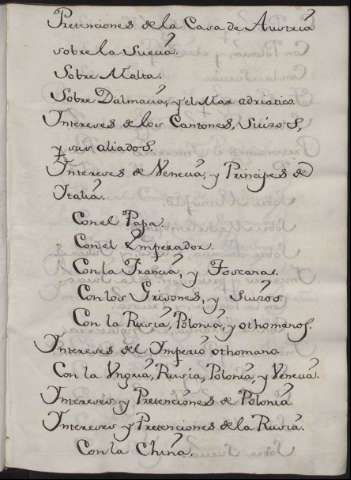 Pretenciones de la Casa de Austriá
sobre la Sueciá.
Sobre Malta.
Sobre Dalmaciá, y el Mar adriatico
Intereses de los Cantones, Suizos,
y sus aliados.
Intereses de Veneciá, y Principes de
Italiá.
Con el Papa.
Con el Emperador.
Con la Franciá, y Toscana.
Con los Grisones, y Suizos.
Con la Rusiá, Poloniá, y othomanos.
Intereses del Imperió othomano
Con la Vngriá, Rusiá, Poloniá, y Veneciá.
Intereses y Pretenciónes de Poloniá
Intereses y Pretenciones de la Rusiá.
Con la China.